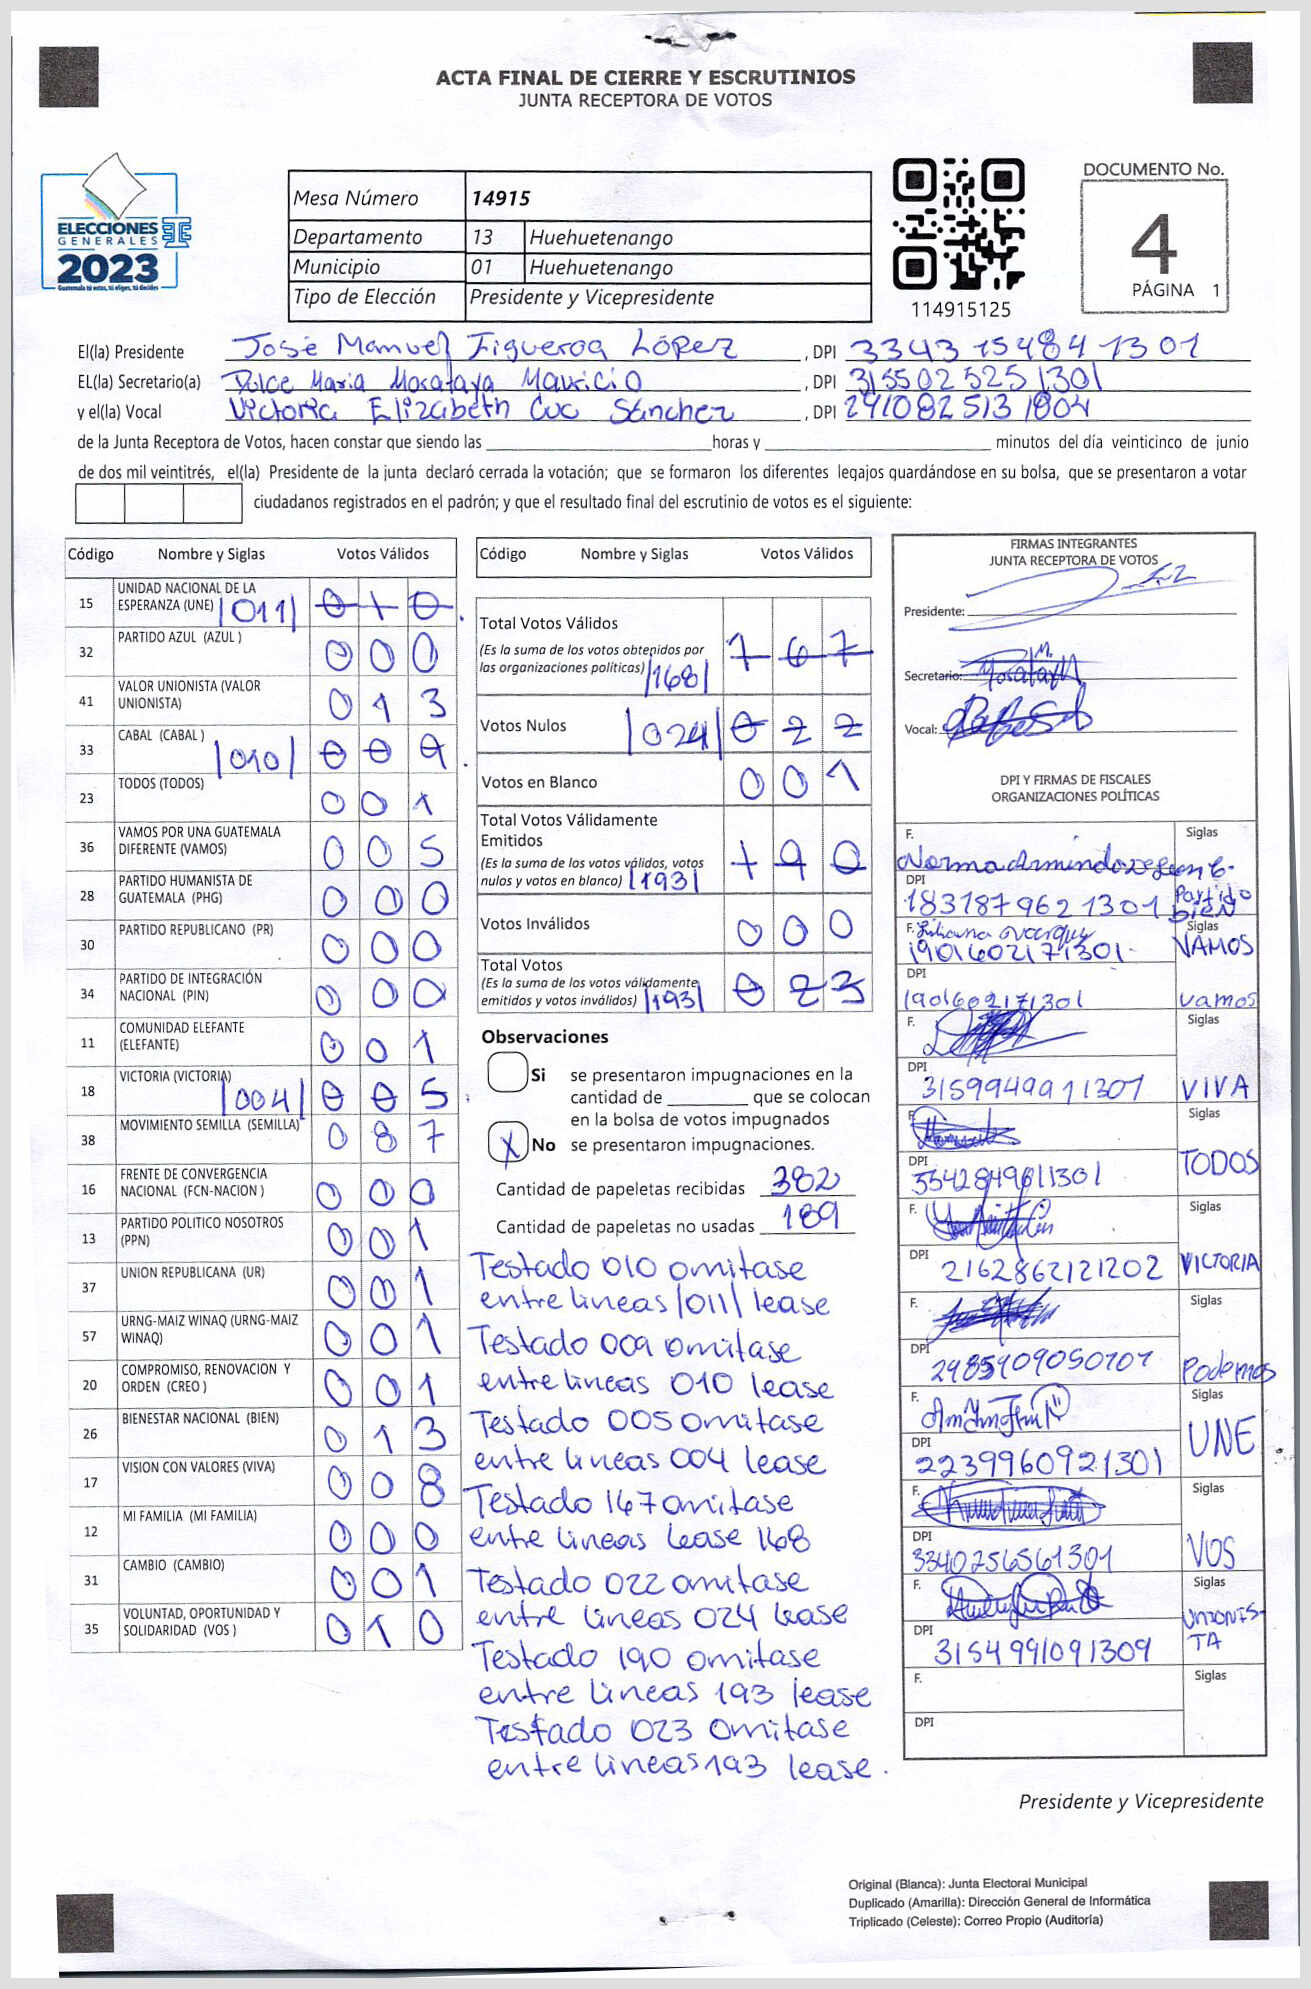 ACTA FINAL DE CIERRE Y ESCRUTINIOS
JUNTA RECEPTORA DE VOTOS
ELECCIONES
GENERALES
2023
Guatemala tú votas, tú eliges, tú decides
Mesa Número 14915
Departamento 13 Huehuetenango
Municipio 01 Huehuetenango
Tipo de Elección Presidente y Vicepresidente
114915125
DOCUMENTO No.
4
PÁGINA 1
El(la) Presidente José Manuel Figueroa López, DPI 3343 15484 1301
EL(la) Secretario(a) Dulce Maria Morataya Mauricio, DPI 315502525 1301
y el(la) Vocal Victoria Elizabeth Cuc Sánchez, DPI 241082513 1804
de la Junta Receptora de Votos, hacen constar que siendo las ____ horas y ____ minutos del día veinticinco de junio
de dos mil veintitrés, el(la) Presidente de la junta declaró cerrada la votación; que se formaron los diferentes legajos guardándose en su bolsa, que se presentaron a votar
ciudadanos registrados en el padrón; y que el resultado final del escrutinio de votos es el siguiente:
Código Nombre y Siglas Votos Válidos
15 UNIDAD NACIONAL DE LA ESPERANZA (UNE) |011| 0 1 0
32 PARTIDO AZUL (AZUL ) 0 0 0
41 VALOR UNIONISTA (VALOR UNIONISTA) 0 1 3
33 CABAL (CABAL ) |010| 0 0 9
23 TODOS (TODOS) 0 0 1
36 VAMOS POR UNA GUATEMALA DIFERENTE (VAMOS) 0 0 5
28 PARTIDO HUMANISTA DE GUATEMALA (PHG) 0 0 0
30 PARTIDO REPUBLICANO (PR) 0 0 0
34 PARTIDO DE INTEGRACIÓN NACIONAL (PIN) 0 0 0
11 COMUNIDAD ELEFANTE (ELEFANTE) 0 0 1
18 VICTORIA (VICTORIA) |004| 0 0 5
38 MOVIMIENTO SEMILLA (SEMILLA) 0 8 7
16 FRENTE DE CONVERGENCIA NACIONAL (FCN-NACION ) 0 0 0
13 PARTIDO POLITICO NOSOTROS (PPN) 0 0 1
37 UNION REPUBLICANA (UR) 0 0 1
57 URNG-MAIZ WINAQ (URNG-MAIZ WINAQ) 0 0 1
20 COMPROMISO, RENOVACION Y ORDEN (CREO ) 0 0 1
26 BIENESTAR NACIONAL (BIEN) 0 1 3
17 VISION CON VALORES (VIVA) 0 0 8
12 MI FAMILIA (MI FAMILIA) 0 0 0
31 CAMBIO (CAMBIO) 0 0 1
35 VOLUNTAD, OPORTUNIDAD Y SOLIDARIDAD (VOS ) 0 1 0
Código Nombre y Siglas Votos Válidos
Total Votos Válidos
(Es la suma de los votos obtenidos por
las organizaciones políticas) |168| 1 6 7
Votos Nulos |024| 0 2 2
Votos en Blanco 0 0 1
Total Votos Válidamente
Emitidos
(Es la suma de los votos válidos, votos
nulos y votos en blanco) |193| 1 9 0
Votos Inválidos 0 0 0
Total Votos
(Es la suma de los votos válidamente
emitidos y votos inválidos) |193| 0 2 3
Observaciones
Si se presentaron impugnaciones en la
cantidad de ____ que se colocan
en la bolsa de votos impugnados
X No se presentaron impugnaciones.
Cantidad de papeletas recibidas 382
Cantidad de papeletas no usadas 189
Testado 010 omitase
entre lineas |011| lease
Testado 009 omitase
entre lineas 010 lease
Testado 005 omitase
entre lineas 004 lease
Testado 167 omitase
entre lineas lease 168
Testado 022 omitase
entre lineas 024 lease
Testado 190 omitase
entre lineas 193 lease
Testado 023 omitase
entre lineas 193 lease.
FIRMAS INTEGRANTES
JUNTA RECEPTORA DE VOTOS
Presidente:
Secretario:
Vocal:
DPI Y FIRMAS DE FISCALES
ORGANIZACIONES POLÍTICAS
F. Siglas
DPI 183187962 1301 Partido BIEN
F. Liliana Siglas
190160217 1301 VAMOS
DPI
190160217 1301 vamos
F. Siglas
DPI 315994991 1301 VIVA
F. Siglas
DPI 334284981 1301 TODOS
F. Siglas
DPI 216286212 1202 VICTORIA
F. Siglas
DPI 2985909050101 Podemos
F. Siglas
DPI 223996092 1301 UNE
F. Siglas
DPI 334025656 1301 VOS
F. Siglas
DPI 3154991091309 UNIONISTA
F. Siglas
DPI
Presidente y Vicepresidente
Original (Blanca): Junta Electoral Municipal
Duplicado (Amarilla): Dirección General de Informática
Triplicado (Celeste): Correo Propio (Auditoría)